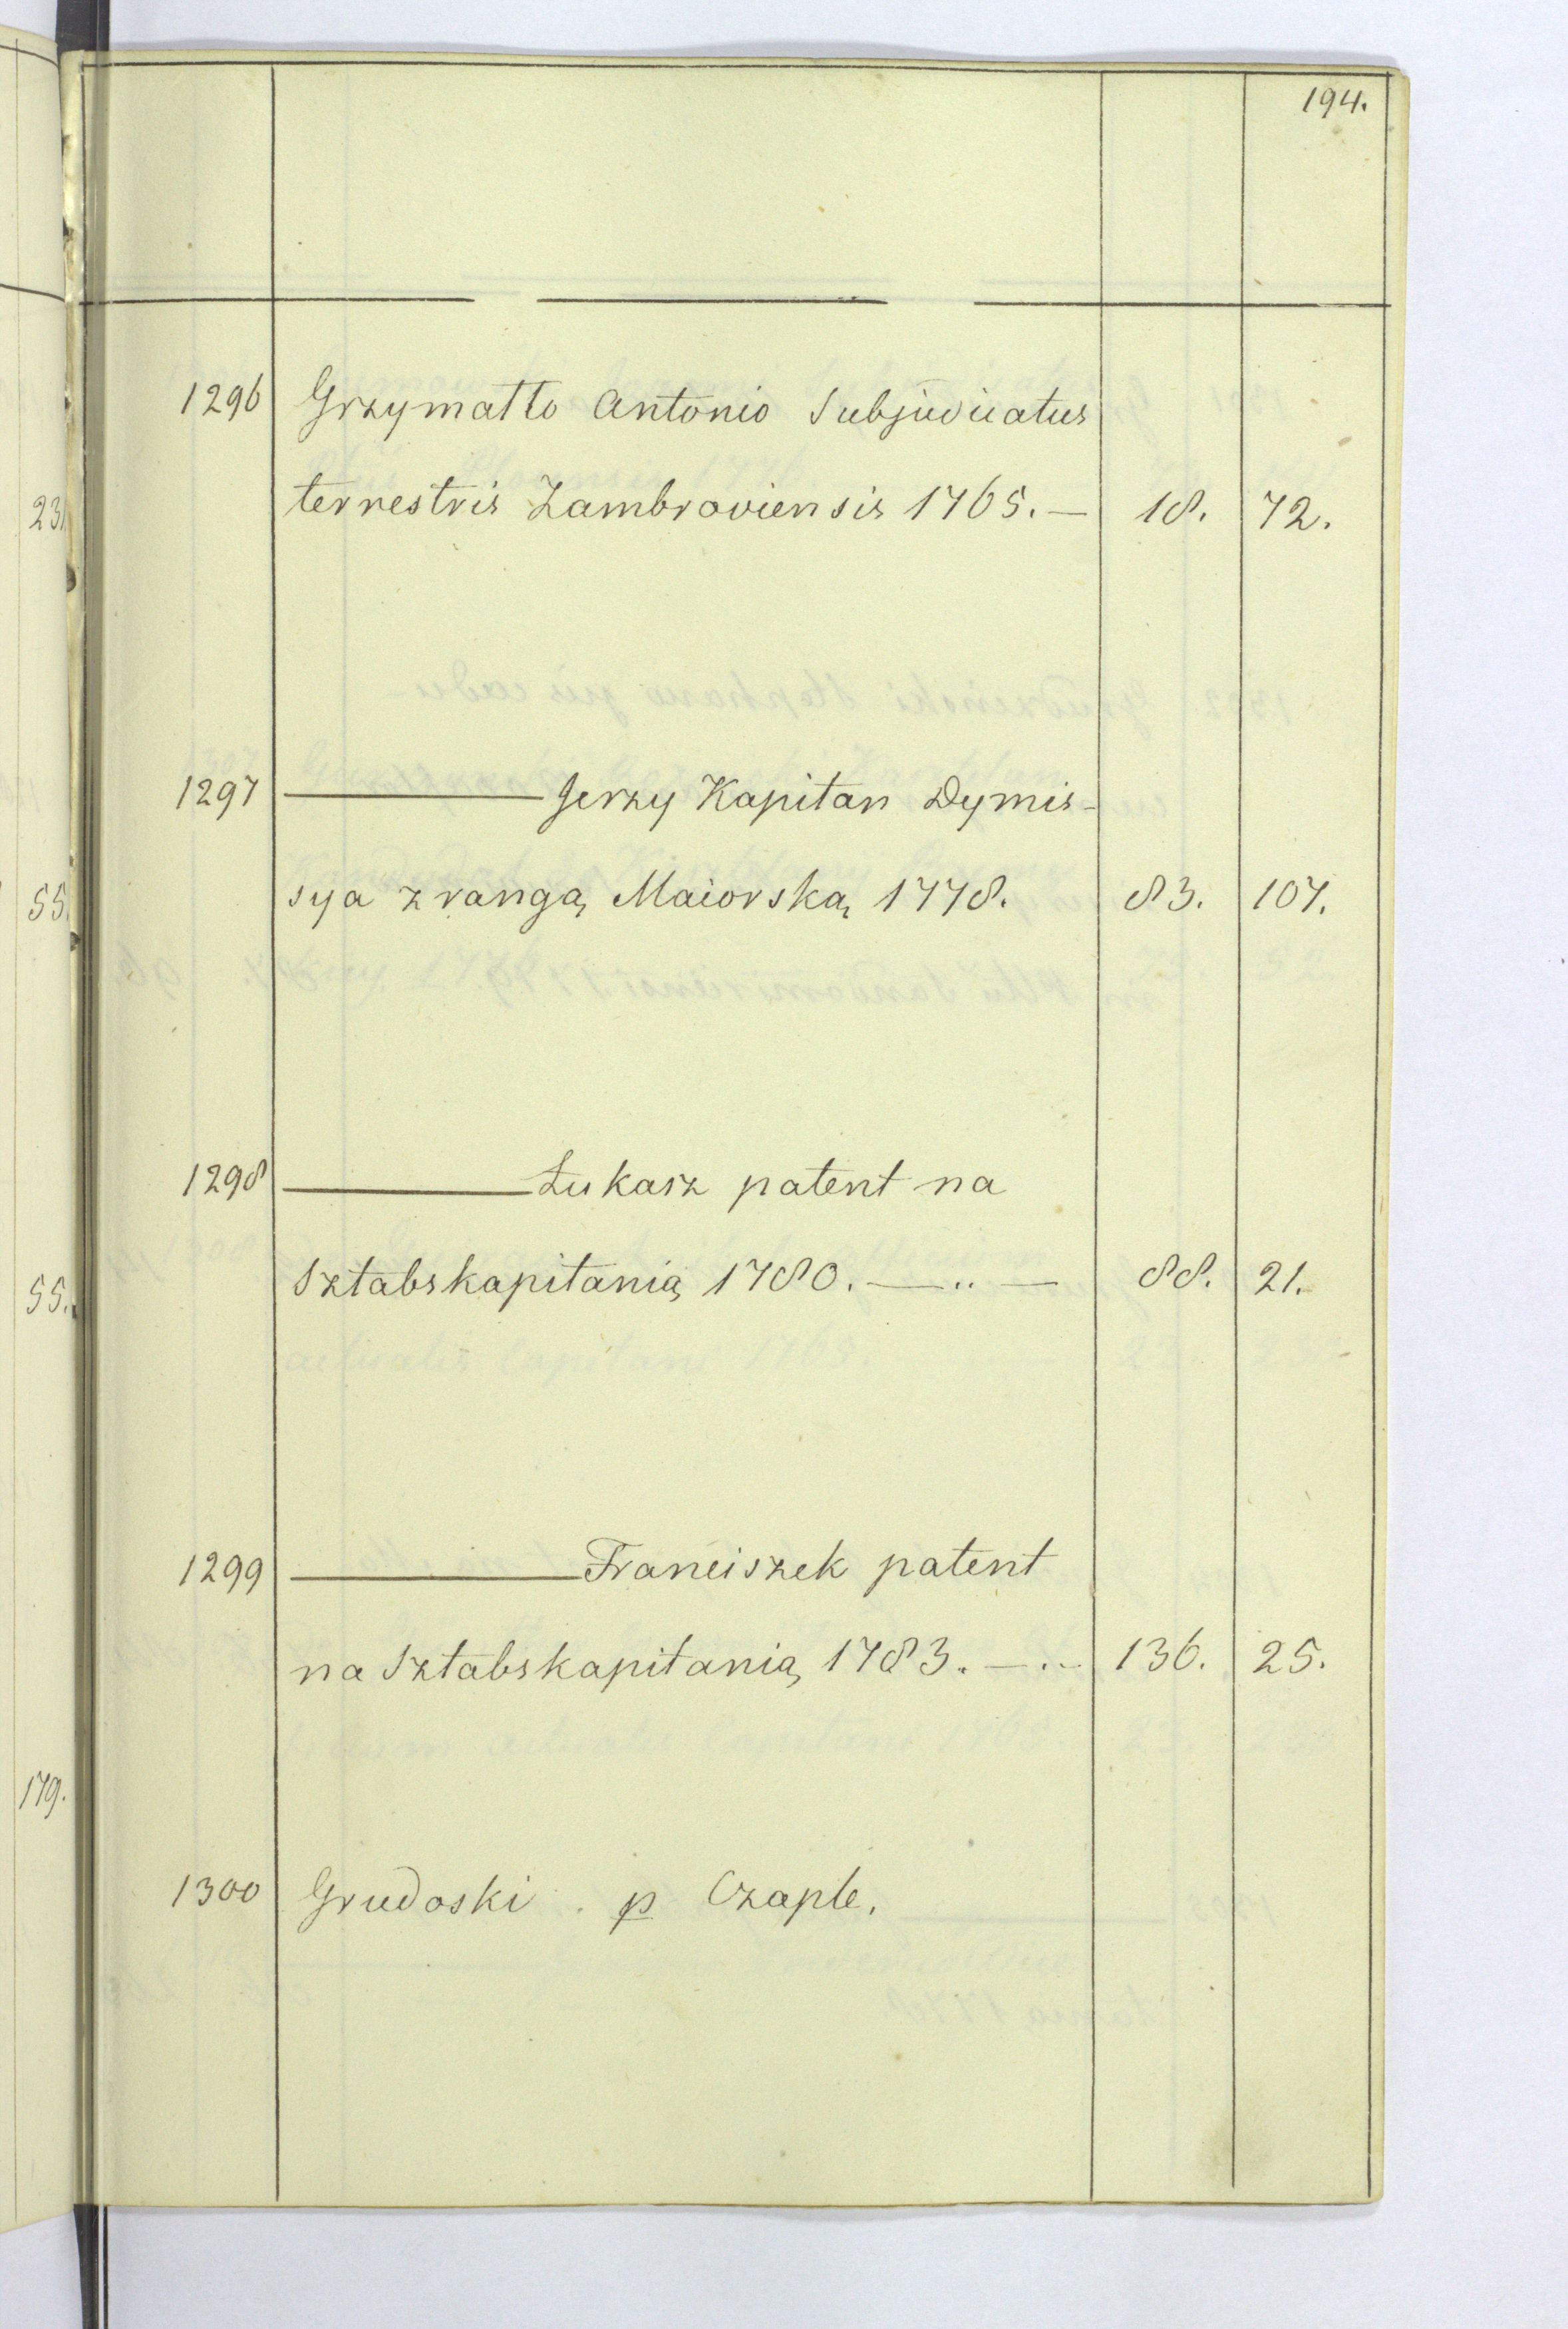 194.
1296 Grzymałło Antonio Subjudicatus
terrestris Zambroviensis 1765. — 18. 72.
1297 ——— Jerzy Kapitan Dymis-
sya z rangą Maiorską 1778. 83. 107.
1298 ——— Łukasz patent na
Sztabskapitanią 1780. — .. — 88. 21.
1299 ——— Franciszek patent
na Sztabskapitanią 1783. — .. - 136. 25.
1300 Grudoski p Czaple.
23.
55.
55.
179.